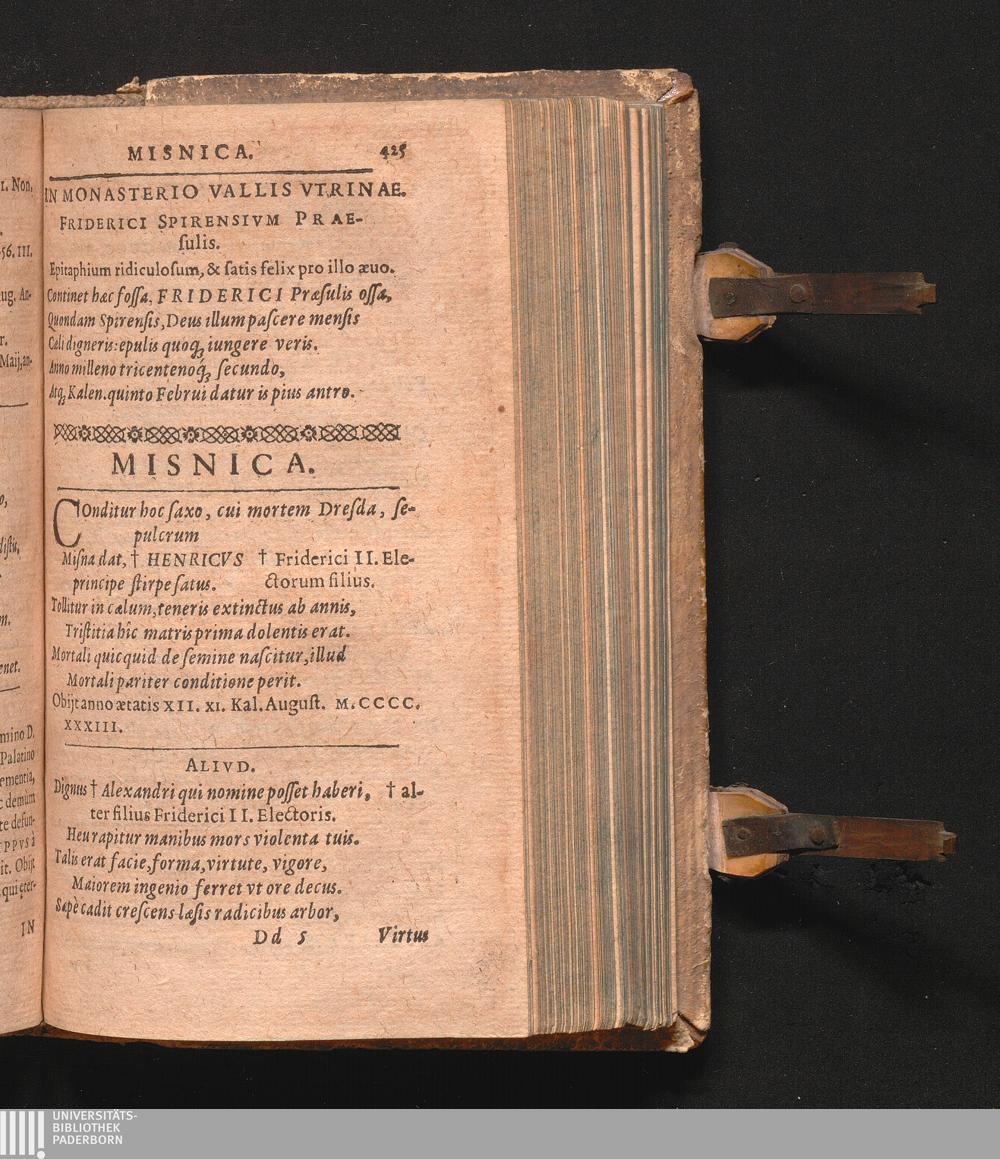 r. Non.
56. III.
ug. An-
r.
Maij, an-
o,
distu,
m.
enet.
mino D.
Palatino
ementia,
c demum
te defun-
PPVS à
it. Obijt
IN
MISNICA. 425
IN MONASTERIO VALLIS VTRINAE.
FRIDERICI SPIRENSIVM PRAE-
ſulis.
Epitaphium ridiculoſum, & ſatis felix pro illo æuo.
Continet hæc foſſa, FRIDERICI Præſulis oſſa,
Quondam Spirenſis, Deus illum paſcere menſis
Cæli digneris: epulis quoq; iungere veris.
Anno milleno tricentenoq́; ſecundo,
Atq; Kalen. quinto Februi datur is pius antro.
MISNICA.
COnditur hoc ſaxo, cui mortem Dreſda, ſe-
pulcrum
Miſna dat, † HENRICVS † Friderici II. Ele-
principe ſtirpe ſatus. ctorum filius.
Tollitur in cælum, teneris extinctus ab annis,
Triſtitia hîc matris prima dolentis erat.
Mortali quicquid de ſemine naſcitur, illud
Mortali pariter conditione perit.
Obijt anno ætatis XII. XI. Kal. Auguſt. M. CCCC.
XXXIII.
ALIVD.
Dignus † Alexandri qui nomine poſſet haberi, † al-
ter filius Friderici II. Electoris.
Heu rapitur manibus mors violenta tuis.
Talis erat facie, forma, virtute, vigore,
Maiorem ingenio ferret vt ore decus.
Sæpè cadit creſcens læſis radicibus arbor,
Dd 5 Virtus
UNIVERSITÄTS-
BIBLIOTHEK
PADERBORN